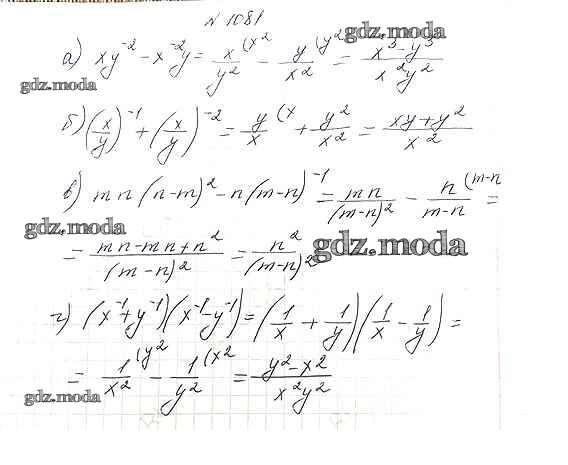 N 1081
а) xy⁻² - x⁻²y = x/y² (x² - y/x² (y² = x³ - y³/x²y²
gdz.moda
gdz.moda
б) (x/y)⁻¹ + (x/y)⁻² = y/x (x + y²/x² = xy + y²/x²
в) mn (n-m)² - n(m-n)⁻¹ = mn/(m-n)² - n/m-n (m-n =
gdz.moda
= mn - mn + n²/(m-n)² = n²/(m-n)²
gdz.moda
г) (x⁻¹ + y⁻¹)(x⁻¹ - y⁻¹) = (1/x + 1/y)(1/x - 1/y) =
= 1/x² (y² - 1/y² (x² = y² - x²/x²y²
gdz.moda